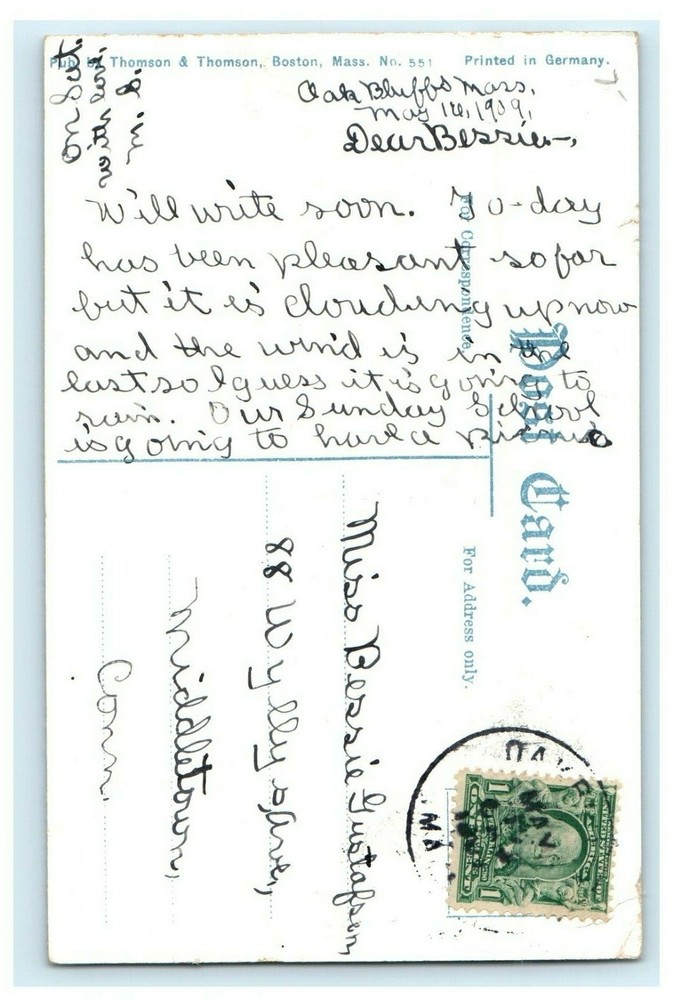 Pub. by Thomson & Thomson, Boston, Mass. No. 551 Printed in Germany.
Oak Bluffs Mass.
May 1909,
Dear Bessie—,
Will write soon. To-day
has been pleasant so far
but it is clouding up now
and the wind is in the
east so I guess it is going to
rain. Our Sunday School
is going to have a picnic
on Sat.
with love.
M. S.
For Correspondence.
Post Card.
For Address only.
Miss Bessie Gustafson,
88 Wyllys Ave,
Middletown,
Conn.
1
MAY
MA